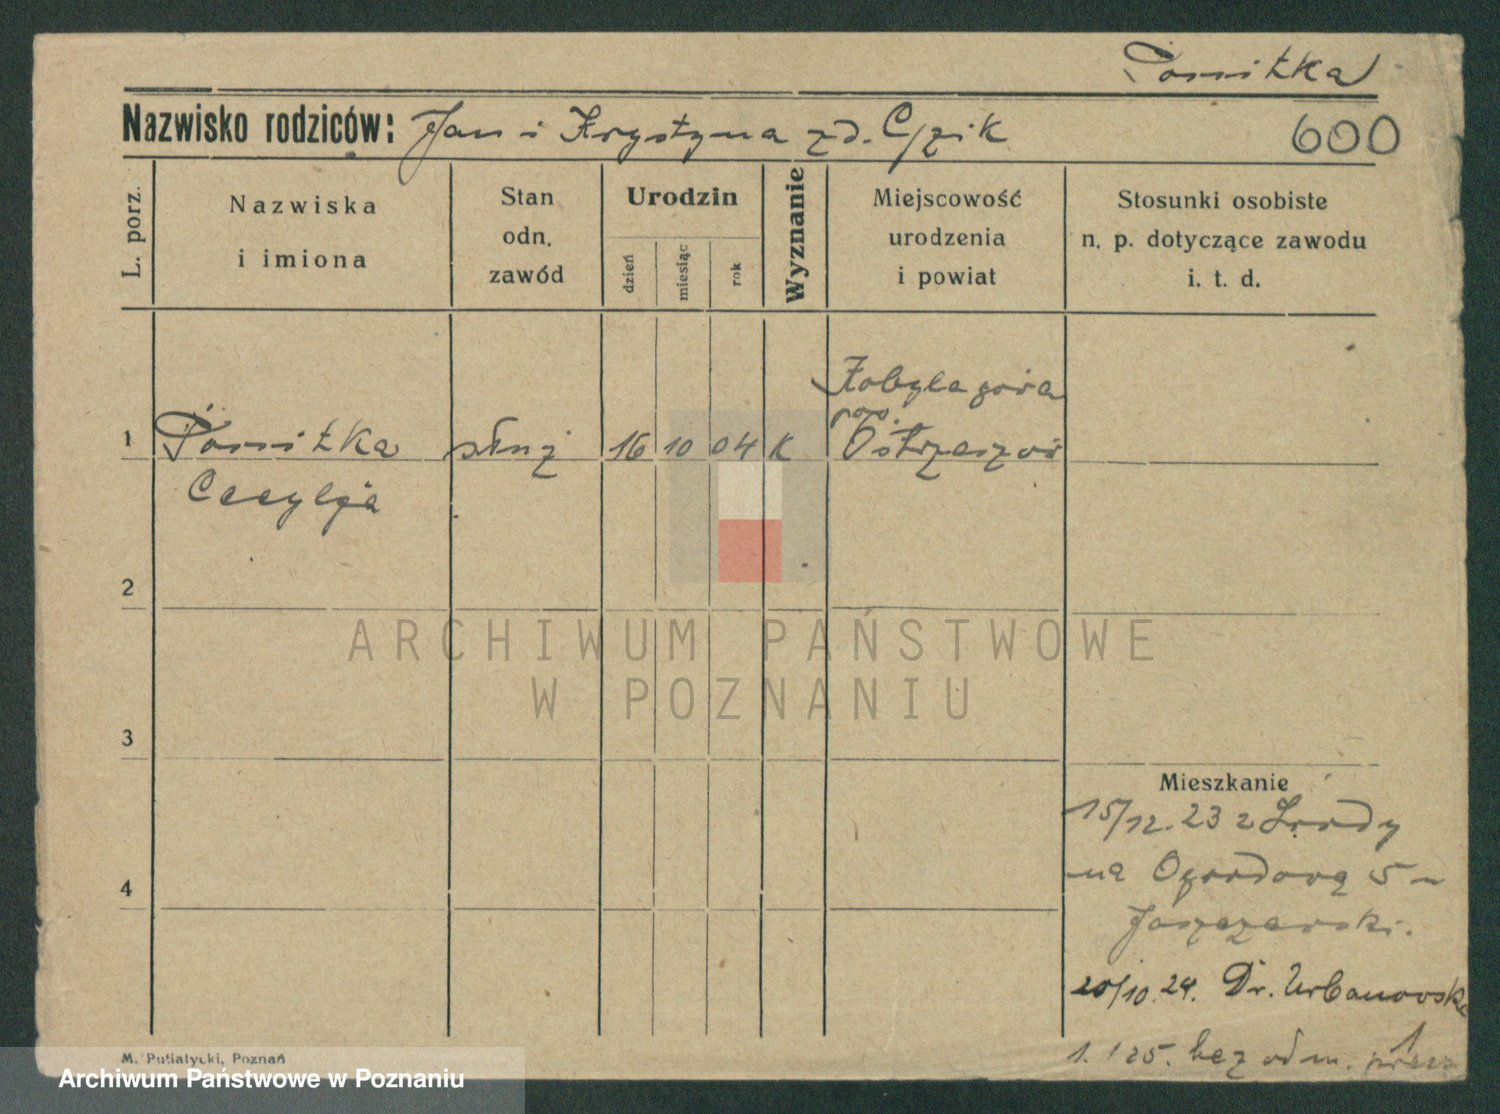 Pomitka
Nazwisko rodziców: Jan i Krystyna zd. Czik
600
L. porz.
Nazwiska
i imiona
Stan
odn.
zawód
Urodzin
dzień
miesiąc
rok
Wyznanie
Miejscowość
urodzenia
i powiat
Stosunki osobiste
n. p. dotyczące zawodu
i. t. d.
Kobyla góra
pow.
1 służ 16 10 04 K Ostrzeszów
Cecylja
2
3
4
ARCHIWUM PAŃSTWOWE
W POZNANIU
Mieszkanie
15/12. 23 z Środy
na Ogrodową 5
20/10. 24. Dr. Urbanowska
1. 1 25. bez odm. przez
M. Putiatycki, Poznań
Archiwum Państwowe w Poznaniu